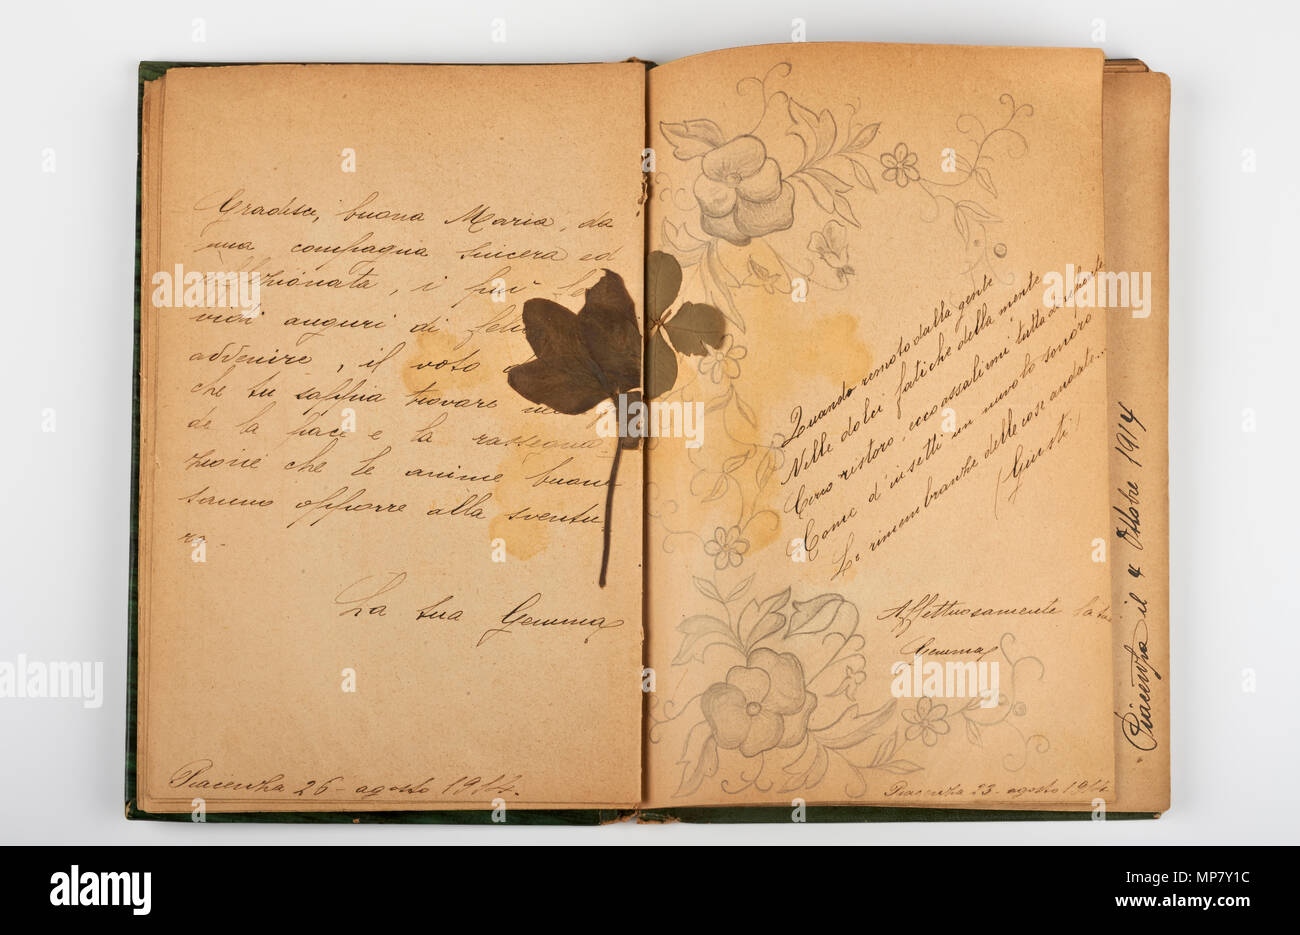 Gradisci, buona Maria, da
una compagna sincera ed
affezionata, i piu
vidi auguri di
avvenire, il voto
che tu sappia trovare
de la pace e la rassegna-
zione che le anime buone
sanno opporre alla sventu-
ra.
La tua Gemma
Piacenza 26 - agosto 1914.
Quando remoto dalla gente
Nelle dolci fatiche della mente
Cerco ristoro, ecco assalirmi tutta di
Come d'insetti un nuvolo sonoro
Le rimembranze delle cose andate...
(Giusti)
Affettuosamente la tua
Gemma
Piacenza 23 - agosto 1914
Piacenza il 4 Ottobre 1914
alamy
MP7Y1C
www.alamy.com